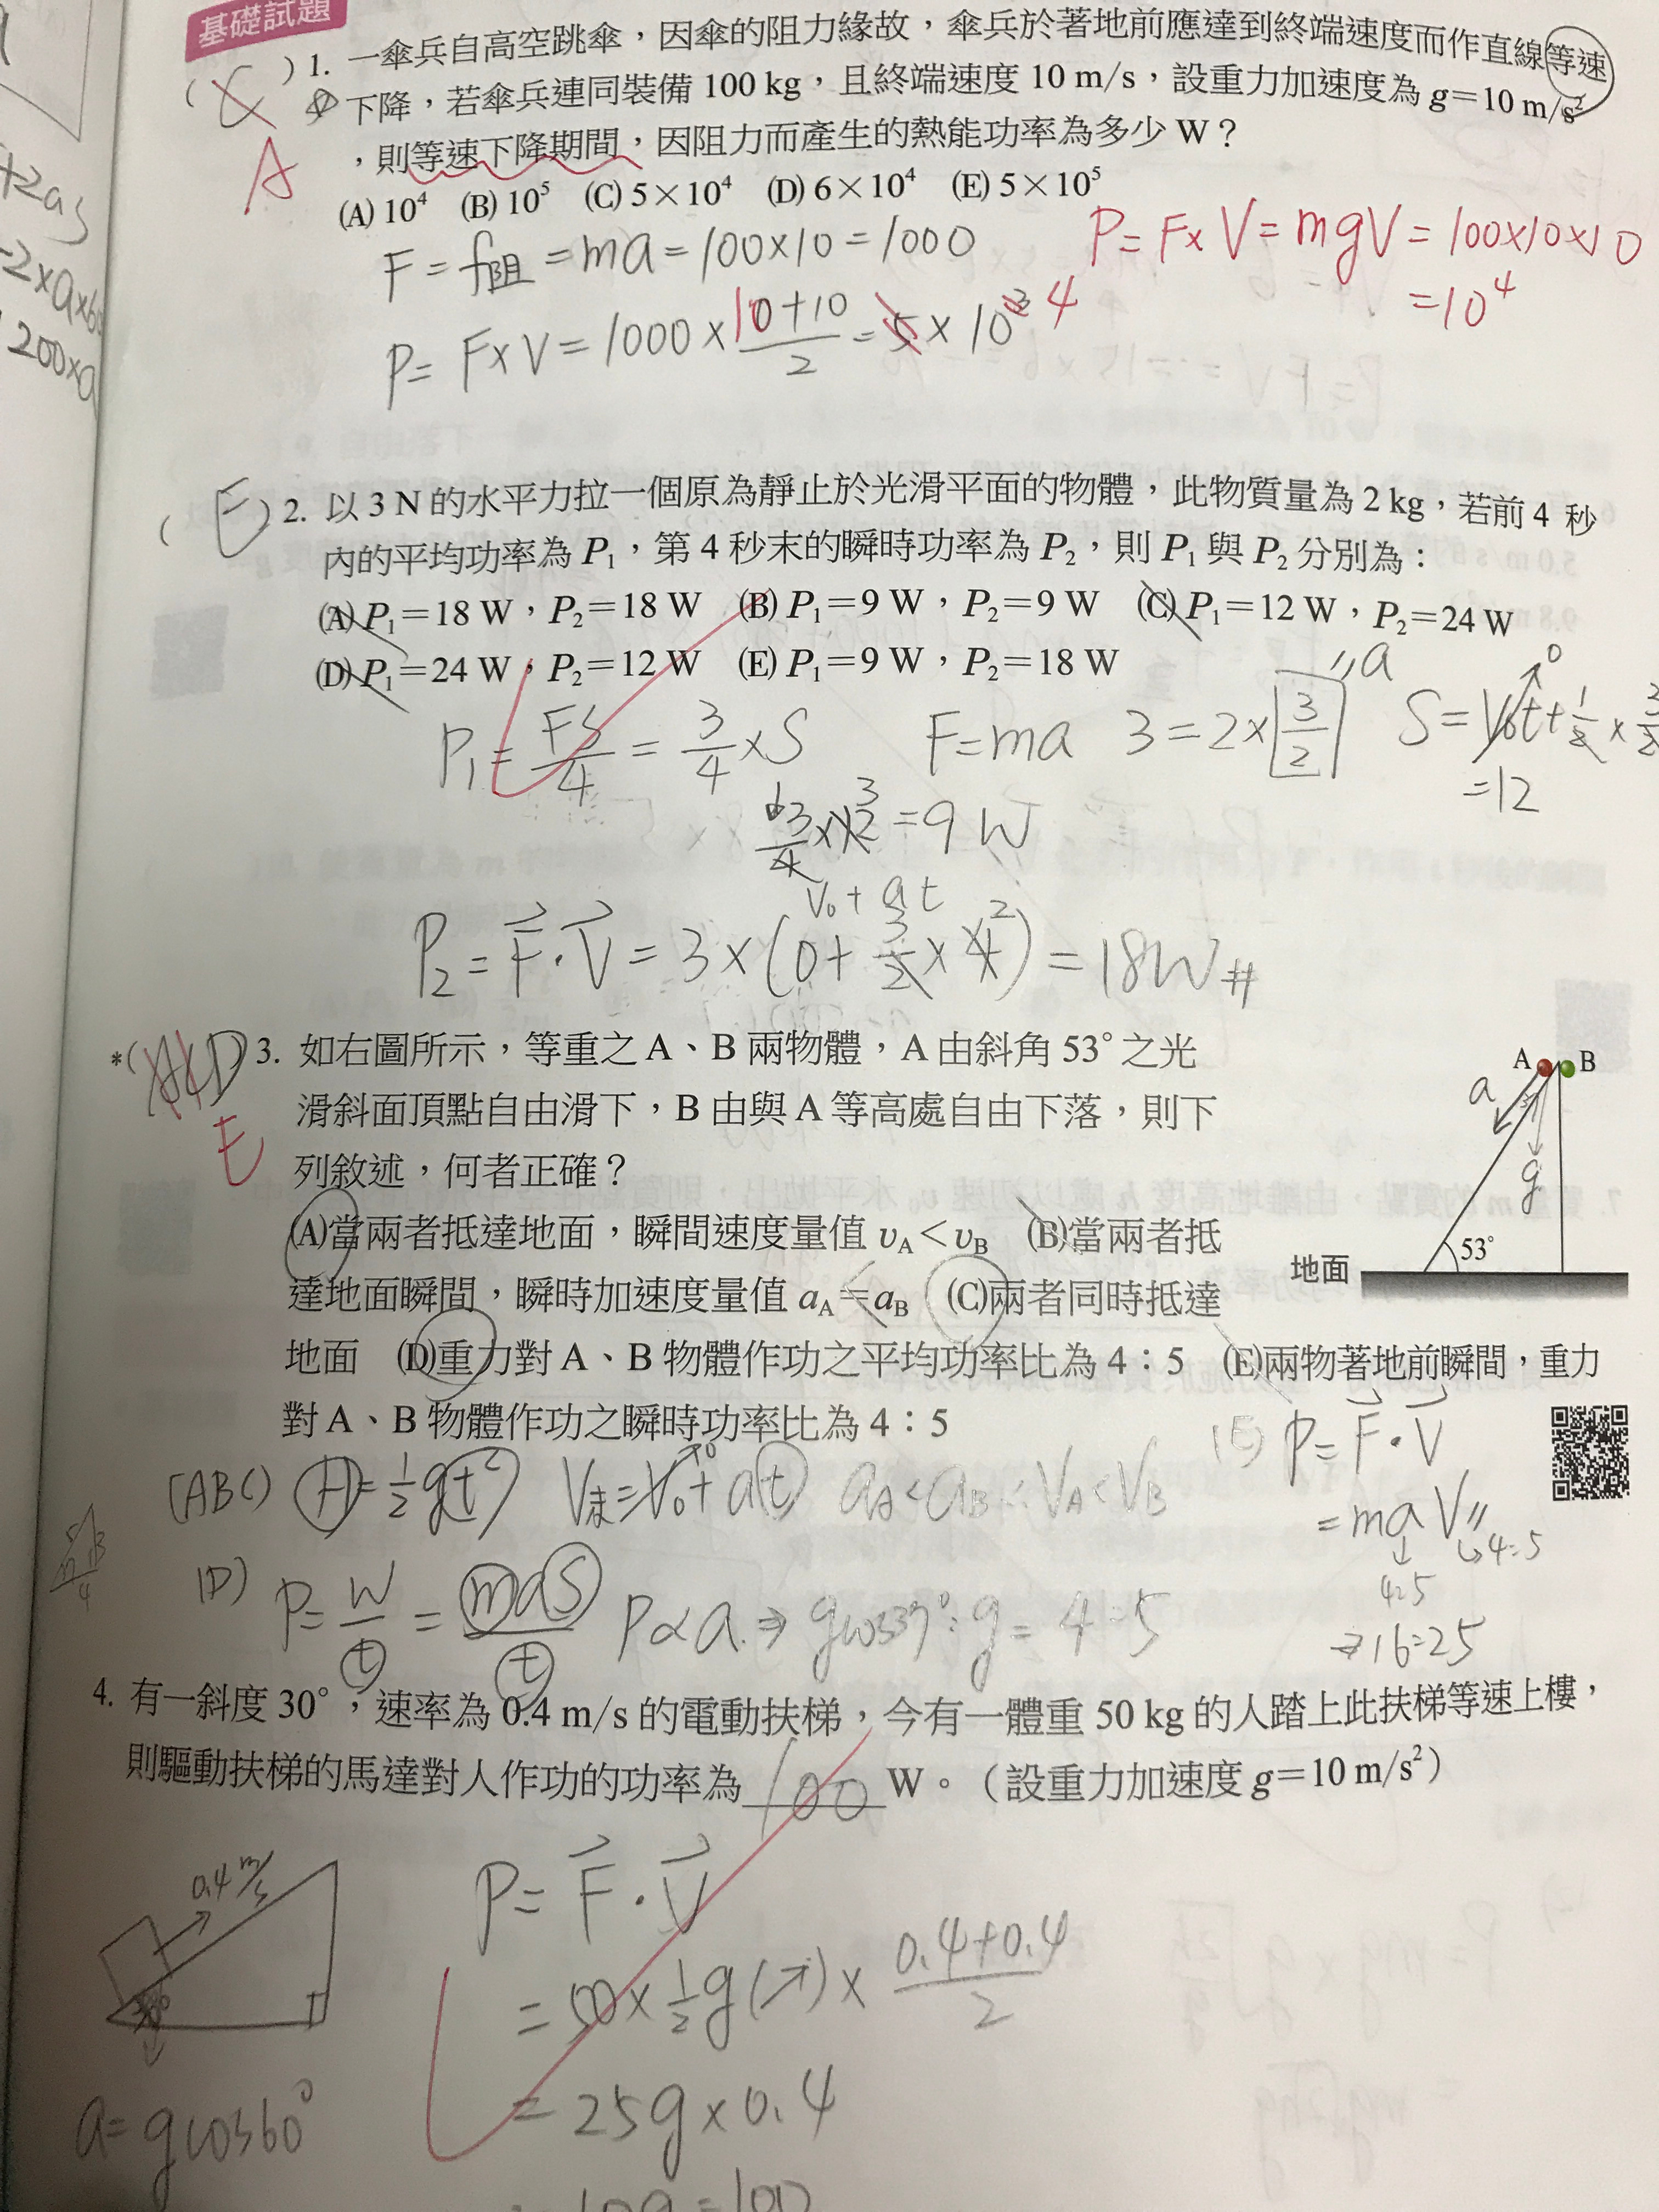 基礎試題
+2as
-2×a×60
200×a
(C) 1. 一傘兵自高空跳傘，因傘的阻力緣故，傘兵於著地前應達到終端速度而作直線等速
下降，若傘兵連同裝備 100 kg，且終端速度 10 m/s，設重力加速度為 g＝10 m/s²
A
，則等速下降期間，因阻力而產生的熱能功率為多少 W？
(A) 10⁴ (B) 10⁵ (C) 5×10⁴ (D) 6×10⁴ (E) 5×10⁵
F = f阻 = ma = 100×10 = 1000
P = F×V = mgV = 100×10×10
= 10⁴
P = F×V = 1000 × (10+10)/2 = 5 × 10³ 4
(E) 2. 以 3 N 的水平力拉一個原為靜止於光滑平面的物體，此物質量為 2 kg，若前 4 秒
內的平均功率為 P₁，第 4 秒末的瞬時功率為 P₂，則 P₁ 與 P₂ 分別為：
(A) P₁＝18 W，P₂＝18 W (B) P₁＝9 W，P₂＝9 W (C) P₁＝12 W，P₂＝24 W
(D) P₁＝24 W，P₂＝12 W (E) P₁＝9 W，P₂＝18 W
P₁ = FS/4 = 3/4 × S F = ma 3 = 2× 3/2 a S = V₀t + 1/2 × 3/2
= 12
3/4 × 12 = 9 W
V₀ + at
P₂ = F · V = 3 × (0 + 3/2 × 4) = 18W #
*( D) 3. 如右圖所示，等重之 A、B 兩物體，A 由斜角 53° 之光
E
滑斜面頂點自由滑下，B 由與 A 等高處自由下落，則下
列敘述，何者正確？
(A)當兩者抵達地面，瞬間速度量值 vA＜vB (B)當兩者抵
達地面瞬間，瞬時加速度量值 aA＝aB (C)兩者同時抵達
地面 (D)重力對 A、B 物體作功之平均功率比為 4：5 (E)兩物著地前瞬間，重力
對 A、B 物體作功之瞬時功率比為 4：5
A B
a
g
53°
地面
(ABC) H = 1/2 gt² V末 = V₀ + at aA < aB ∴ VA < VB
(E) P = F · V
= ma V
4:5
4:5
⇒ 16:25
(D) P = W/t = maS/t P∝a ⇒ gcos37° : g = 4:5
4. 有一斜度 30°，速率為 0.4 m/s 的電動扶梯，今有一體重 50 kg 的人踏上此扶梯等速上樓，
則驅動扶梯的馬達對人作功的功率為 100 W。（設重力加速度 g＝10 m/s²）
0.4 m/s
30°
a = gcos60°
P = F · V
= 50 × 1/2 g (↗) × (0.4+0.4)/2
= 25g × 0.4
= 10g = 100